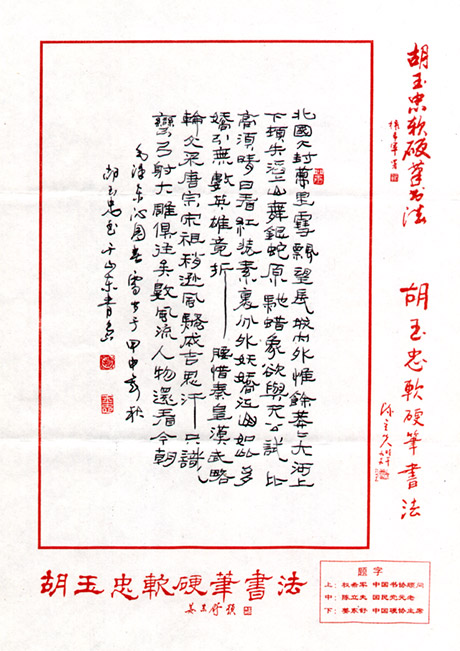 胡玉忠软硬笔书法
权希军
胡玉忠軟硬筆書法
陳立夫
北國冰封萬里雪飄望長城内外惟餘莽〻大河上
下頓失滔〻山舞銀蛇原馳蜡象欲與天公試比
高須晴日看紅裝素裹分外妖嬈江山如此多
嬌引無數英雄竟折——腰惜秦皇漢武略
輸文采唐宗宋祖稍遜風騷成吉思汗——只識
彎弓射大雕俱往矣數風流人物還看今朝
毛澤東沁園春雪書于甲申年秋
胡玉忠书于山东青岛
胡玉忠軟硬筆書法
姜东舒题
题字
上：权希军 中国书协顾问
中：陈立夫 国民党元老
下：姜东舒 中国硬协主席